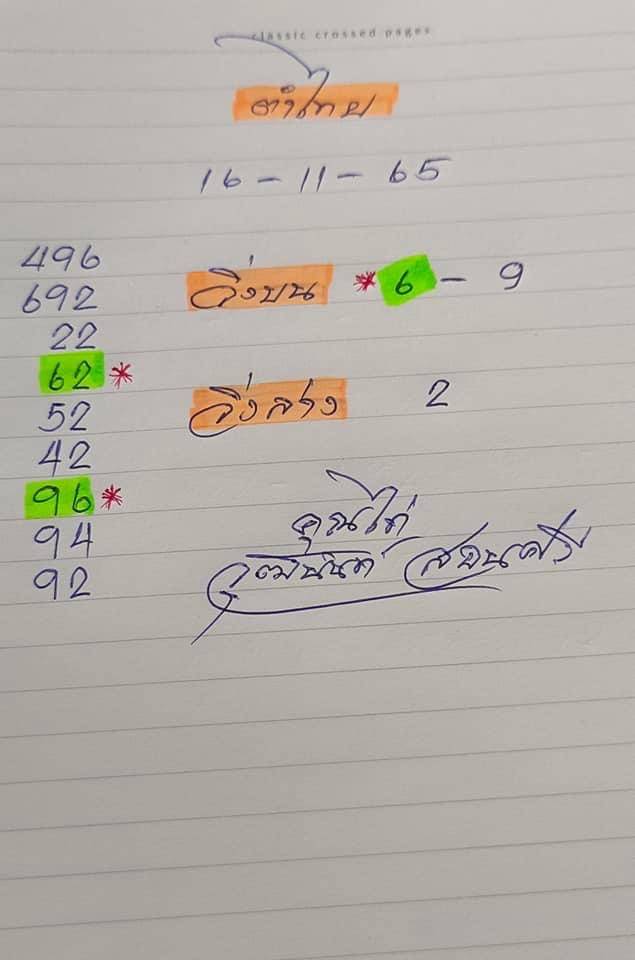 classic crossed pages
ตำไทย
16 - 11 - 65
496
692
22
62 *
52
42
96 *
94
92
วิ่งบน *6 - 9
วิ่งล่าง 2
คุณไก่
วุฒินันท์ สอนศรี